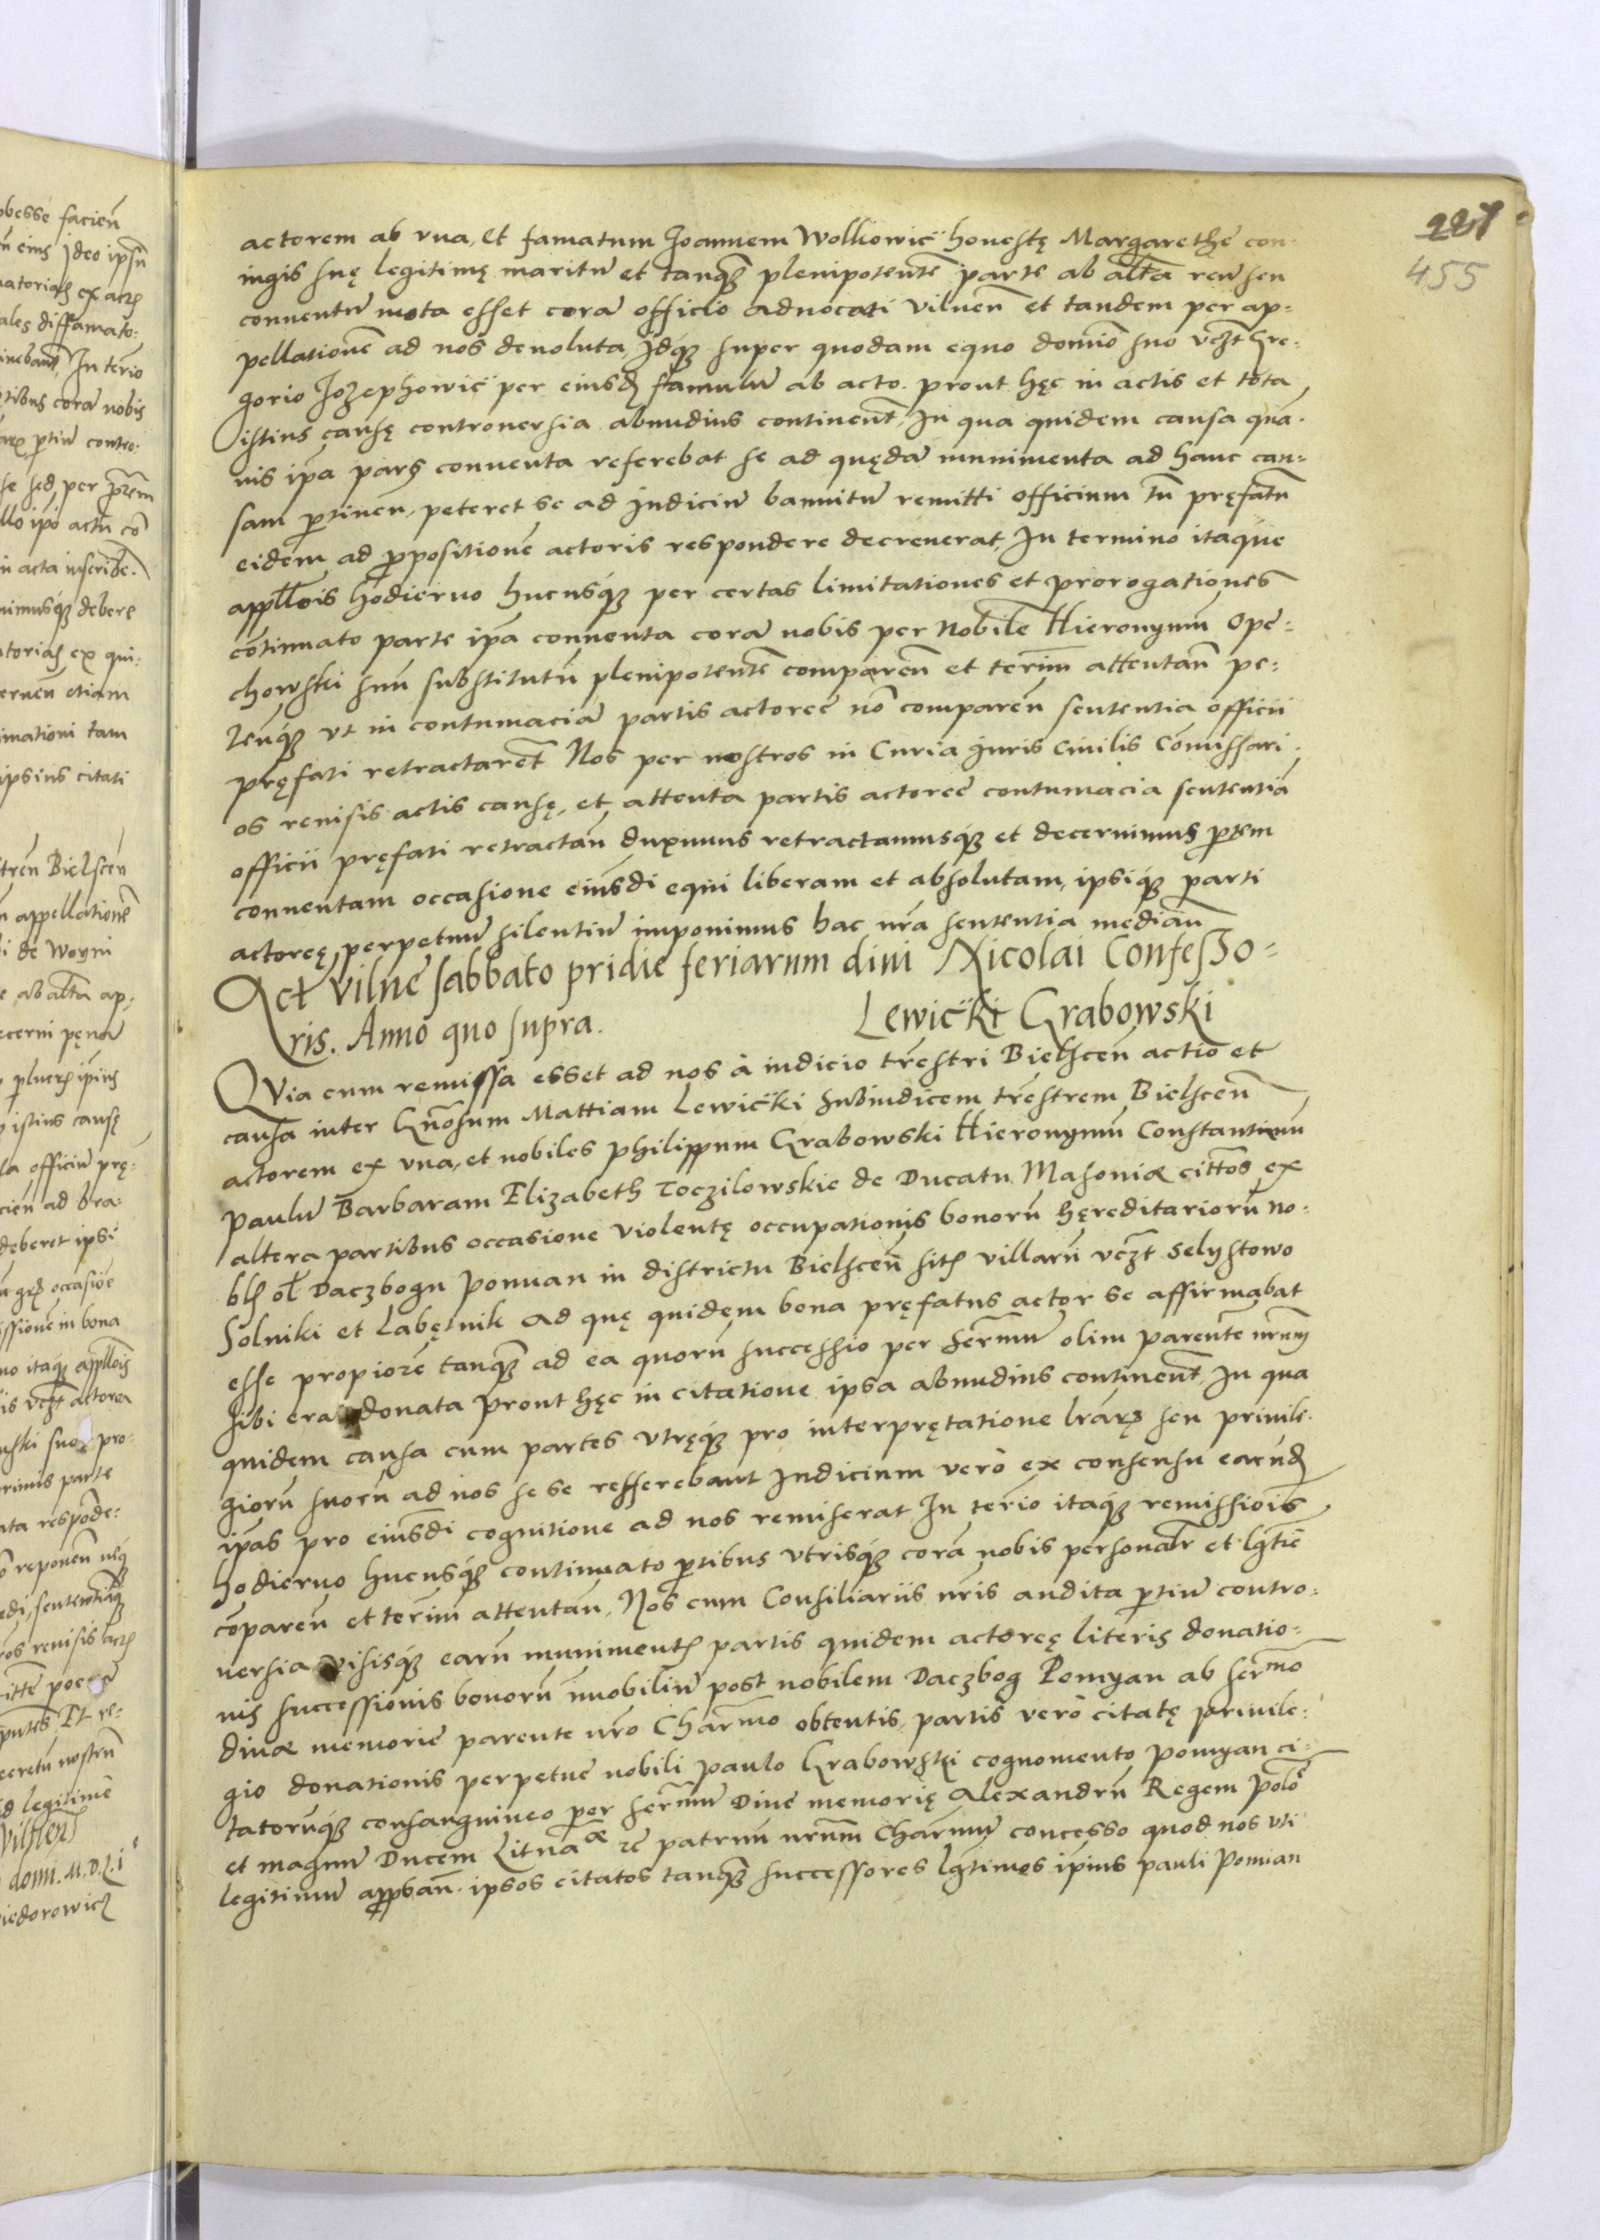 227
455
actorem ab vna, et famatum Joannem Wolkowič honestę Margarethę con-
iugis suę legitimę maritū et tanq̃ plenipotentē parte ab altã reū seu
conuentū mota esset corã officio aduocati vilnen̄ et tandem per ap-
pellationē ad nos deuoluta, Jdq̃ super quodam equo domīo suo vczt Gre-
gorio Jozephowič per eiusd famulū ab acto. prout hęc in actis et tota
istius causę controuersia abundius continent̄, Jn qua quidem causa quã-
uis ip̃a pars conuenta referebat se ad quędã munimenta ad hanc cau-
sam ptinen̄, peteret se ad Judiciū bannitū remitti officium tñ pręfatū
eidem ad ppositionē actoris respondere decreuerat, Jn termino itaque
appllõis hodierno hucusq̃ per certas limitationes et prorogationes
cōtinuato parte ip̃a conuenta corã nobis per Nobilē Hieronymū Ope-
chowski suū substitutū plenipotentē comparen̄ et term̃ attentañ pe-
teñq̃ vt in contumaciã partis actoreę nō comparen̄ sententia officii
pręfati retractaret̄ Nos per nostros in Curia juris ciuilis Cōmissari-
os reuisis actis causę, et attenta partis actoreę contumacia sententiã
officii pręfati retractañ duximus retractamusq̃ et decernimus ptem
conuentam occasione eiusdi equi liberam et absolutam, ipsiq̃ parti
actoreę, perpetuū silentiū imponimus hac nr̃a sententia mediañ
Act Vilnę sabbato pridie feriarum diui Nicolai Confesso-
ris. Anno quo supra.
Lewički Grabowski
QVia cum remissa esset ad nos à iudicio tr̃estri Bielscen̄ actio et
causa inter Gñosum Mattiam Lewički Subiudicem tr̃estrem Bielscen̄
actorem ex vna, et nobiles Philippum Grabowski Hieronymū Constantinū
Paulū Barbaram Elizabeth Toczilowskie de Ducatu Masoniæ cittos ex
altera partibus occasione violentę occupationis bonorū hęreditariorū no-
blis ol Daczbogu Pomian in districtu Bielscen̄ sit villarū vczt Selystowo
Solniki et Labętnik ad quę quidem bona pręfatus actor se affirmabat
esse propiorē tanq̃ ad ea quorū successio per Serm̃ū olim parentē nr̃um
sibi erat donata prout hęc in citatione ipsa abundius continent̄, Jn qua
quidem causa cum partes vtręq̃ pro interprętatione lrarū seu priuile-
giorū suorū ad nos se se refferebant Judicium verò ex consensu earūd
ip̃as pro eiusdi cognitione ad nos remiserat Jn term̃io itaq̃ remissiois
hodierno hucusq̃ continuato ptibus vtrisq̃ corã nobis personalr et lgitie
cōparen̄ et term̃ attentañ, Nos cum Consiliariis nr̃is audita ptiū contro-
uersia visisq̃ earū muniment partis quidem actoreę literis donatio-
nis successionis bonorū īmobiliū post nobilem Daczbog Pomyan ab Serm̃o
diuæ memorię parente nr̃o Charm̃o obtentis, partis verò citatę priuile-
gio donationis perpetuę nobili Paulo Grabowski cognomento Pomyan ci-
tatorūq̃ consanguineo per Serm̃ū Diuę memorię Alexandrū Regem Polõ
et magnū Ducem Lituãæ zc patruū nr̃um Charm̃ū concesso quod nos vti
legitimū approbañ. ipsos citatos tanq̃ successores lgitimos ip̃ius Pauli Pomian